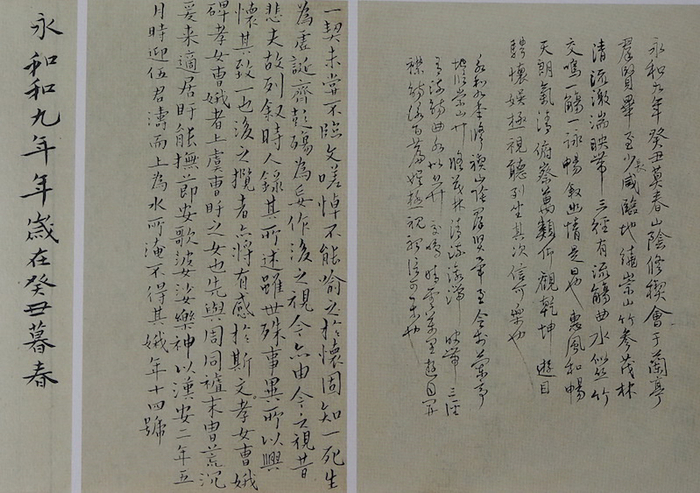 永和九年癸丑莫春山陰修禊會于蘭亭
羣賢畢至少長咸臨地繞崇山竹參茂林
清流激湍映帶三徑有流觴曲水似丝竹
交鳴一觴一詠暢叙幽情是日也惠風和暢
天朗氣清俯察萬類仰觀乾坤遊目
騁懷娛極視聽列坐其次信可樂也
永和九年修禊陰羣賢畢至會於蘭亭
崇山茂林清流映帶三徑
有流觴曲水
一契未嘗不臨文嗟悼不能喻之於懷固知一死生
為虛誕齊彭殤為妄作後之視今亦由今之視昔
悲夫故列叙時人錄其所述雖世殊事異所以興
懷其致一也後之攬者亦將有感於斯文孝女曹娥
碑孝女曹娥者上虞曹盱之女也先與周同禮末曹荒沉
爰来適居盱能撫節安歌婆娑樂神以漢安二年五
月時迎伍君濤而上為水所淹不得其娥年十四號
永和和九年年歲在癸丑暮春